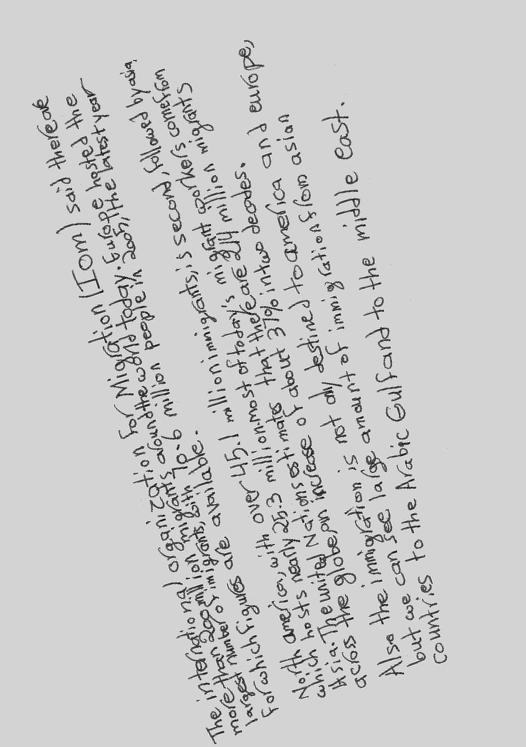 The international organization for Migration (Iom) said thereare
more than 200 million migrants around the world today. Europe hosted the
largest number of immigrants, with 70.6 million people in 2005, the latest year
for which figures are available.
North america, with over 45.1 million immigrants, is second, followed by asia,
which hosts nearly 25.3 million. most of today's migrant workers come from
Asia. The united Nations estimates that there are 214 million migrants
across the globe, an increase of about 37% in two decades.
Also the immigration is not only destined to america and europe,
but we can see large amount of immigration from asian
countries to the Arabic Gulf and to the middle east.